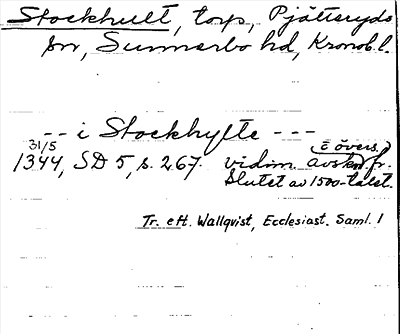 Stockhult, torp, Pjätteryds
sn, Sunnerbo hd, Kronob. l.
-- i Stockhylte ---
31/5 (o övers.)
1344, SD 5, s. 267. vidim. avskr. fr.
slutet av 1500-talet.
Tr. eft. Wallqvist, Ecclesiast. Saml. 1